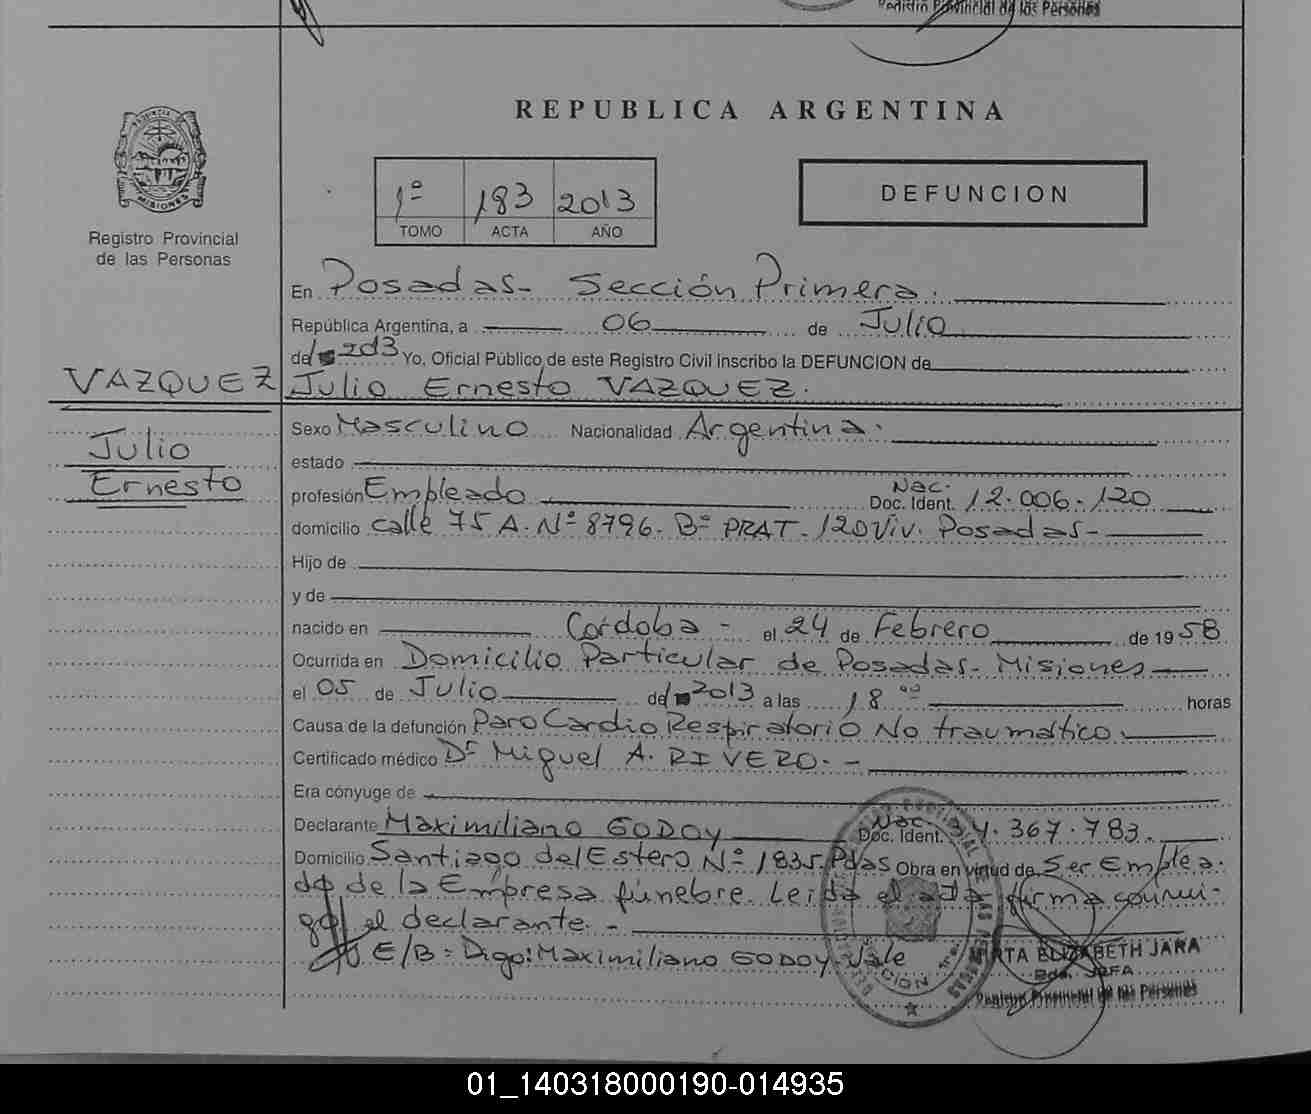 Registro Provincial de las Personas
REPUBLICA ARGENTINA
MISIONES
Registro Provincial
de las Personas
1º 183 2013
TOMO ACTA AÑO
DEFUNCION
En Posadas- Sección Primera.
República Argentina, a 06 de Julio
del 2013 Yo, Oficial Público de este Registro Civil inscribo la DEFUNCION de
VAZQUEZ Julio Ernesto VAZQUEZ.
Julio
Ernesto
Sexo Masculino Nacionalidad Argentina.
estado
profesión Empleado Nac. Doc. Ident. 12.006.120
domicilio calle 75 A. Nº 8796. Bº PRAT. 120 Viv. Posadas-
Hijo de
y de
nacido en Cordoba - el 24 de Febrero de 1958
Ocurrida en Domicilio Particular de Posadas- Misiones
el 05 de Julio del 2013 a las 18 ºº horas
Causa de la defunción Paro Cardio Respiratorio No traumático.
Certificado médico Dr Miguel A. RIVERO. -
Era cónyuge de
Declarante Maximiliano GODOY Nac. Doc. Ident. 34.367.783.
Domicilio Santiago del Estero Nº 1835. Pdas Obra en virtud de Ser Emplea-
do de la Empresa fúnebre. Leida el acta firma conmi-
go el declarante. -
E/B = Digo: Maximiliano GODOY Vale
MIRTA ELIZABETH JARA
JEFA
Registro Provincial de las Personas
01_140318000190-014935